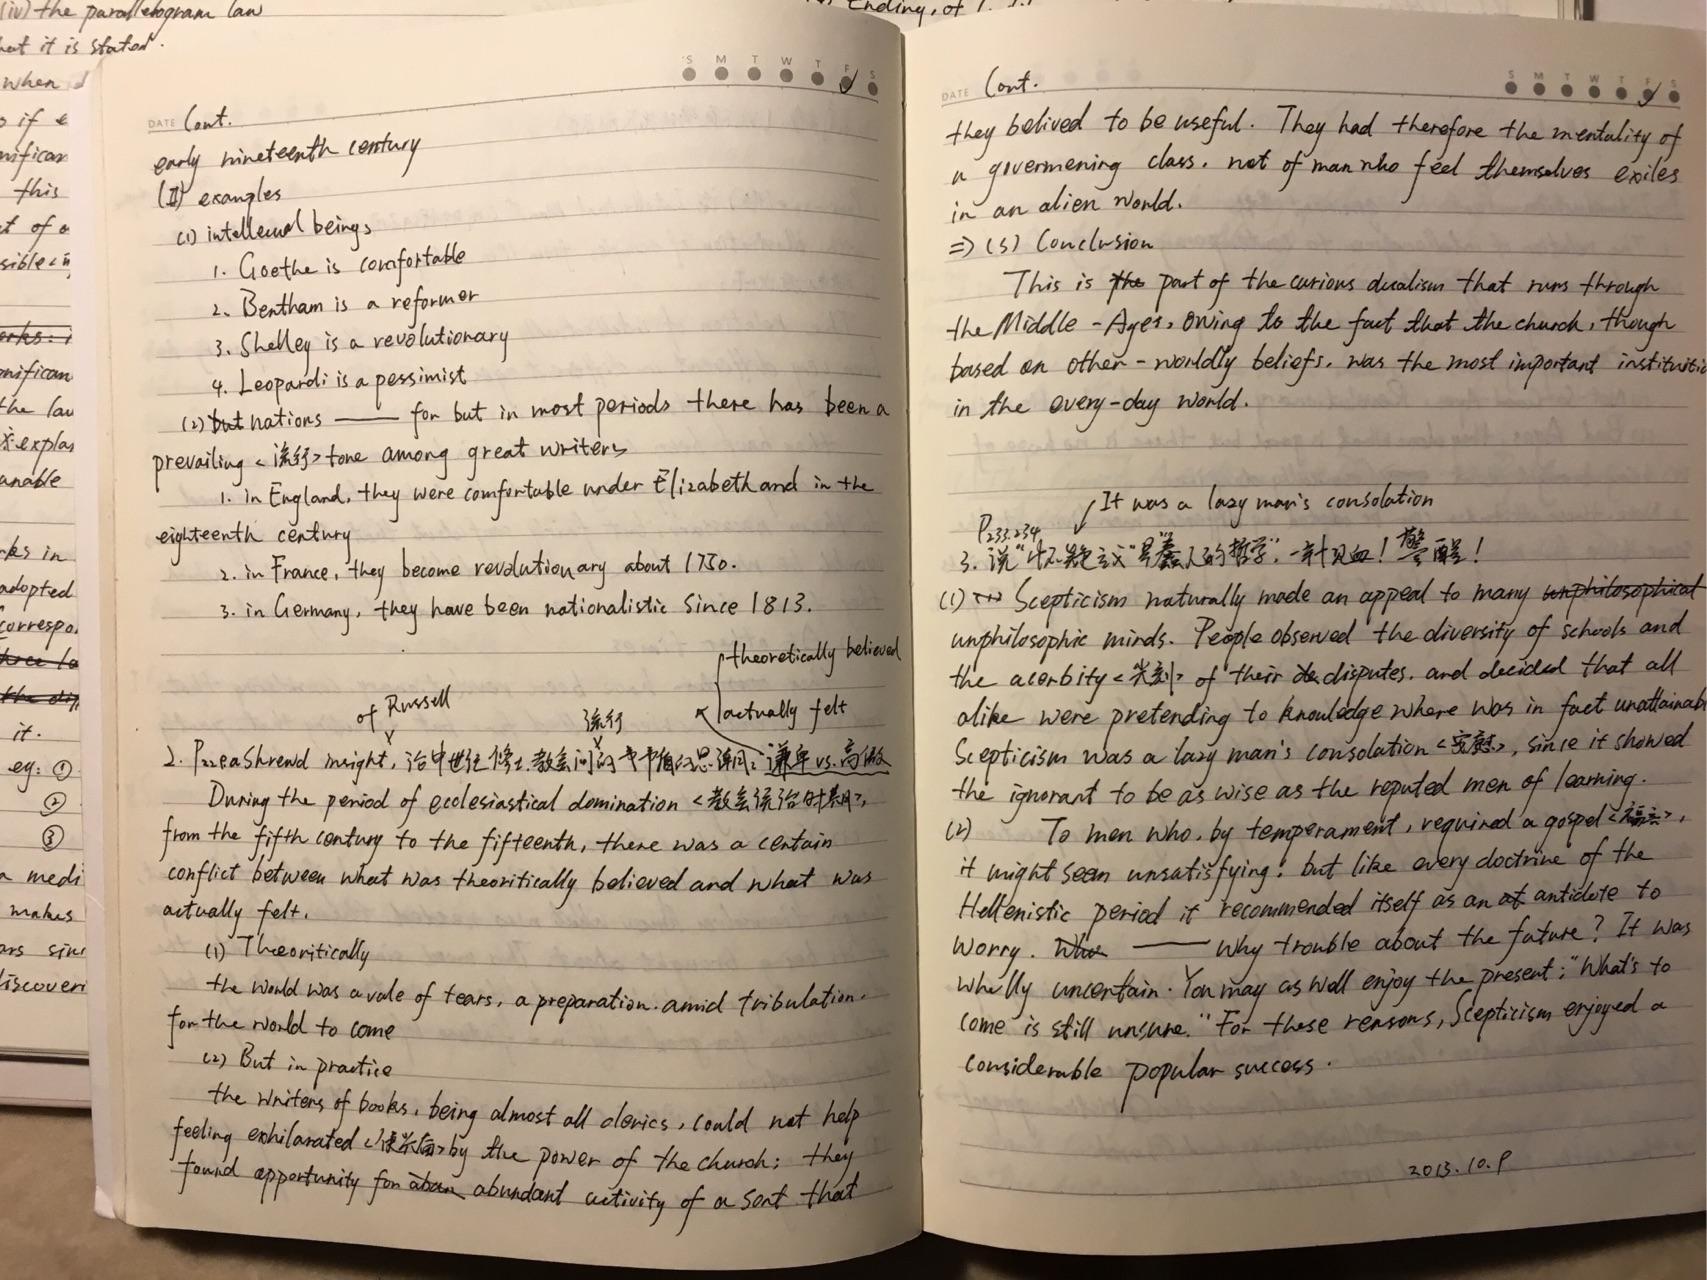 (iv) the parallelogram law
hat it is stated.
when
Ending, of
S M T W T F S
DATE Cont.
early nineteenth century
(II) examples
(1) intellectual beings
1. Goethe is comfortable
2. Bentham is a reformer
3. Shelley is a revolutionary
4. Leopardi is a pessimist
(2) but nations —— for but in most periods there has been a
prevailing <流行> tone among great writers
1. in England, they were comfortable under Elizabeth and in the
eighteenth century
2. in France, they become revolutionary about 1750.
3. in Germany, they have been nationalistic since 1813.
theoretically believed
of Russell
流行
actually felt
2. P22 a Shrewd insight, 治中世纪修士,教会问的 思 谦卑 vs. 高傲
During the period of ecclesiastical domination <教会统治时期>,
from the fifth century to the fifteenth, there was a certain
conflict between what was theoritically believed and what was
actually felt.
(1) Theoritically
the world was a vale of tears, a preparation. amid tribulation.
for the world to come
(2) But in practice
the writers of books, being almost all clerics, could not help
feeling exhilarated by the power of the church; they
found opportunity for abun abundant activity of a sort that
S M T W T F S
DATE Cont.
they belived to be useful. They had therefore the mentality of
a govermening class. not of man who feel themselves exiles
in an alien world.
=> (3) Conclusion
This is the part of the curious dualism that runs through
the Middle-Ages, owing to the fact that the church, though
based on other-worldly beliefs, was the most important instituitio
in the every-day world.
It was a lazy man's consolation
P233.234
3. 说"怀疑主义"是"蠢人的哲学". 一针见血! 警醒!
(1) Scepticism naturally made an appeal to many unphilosophical
unphilosophic minds. People observed the diversity of schools and
the acerbity <尖刻> of their de disputes. and decided that all
alike were pretending to knowledge where was in fact unattainab
Scepticism was a lazy man's consolation <安慰>, since it showed
the ignorant to be as wise as the reputed men of learning.
(2) To men who, by temperament, required a gospel <福音>,
it might seem unsatisfying; but like every doctrine of the
Hellenistic period it recommended itself as an at antidote to
worry. Whe —— why trouble about the future? It was
wholly uncertain. You may as well enjoy the present; "What's to
come is still unsure." For these reasons, Scepticism enjoyed a
considerable popular success.
2013.10.P